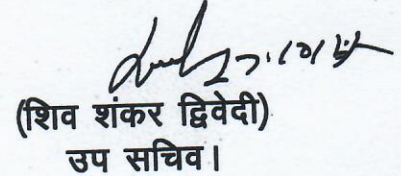 (शिव शंकर द्विवेदी)
उप सचिव।